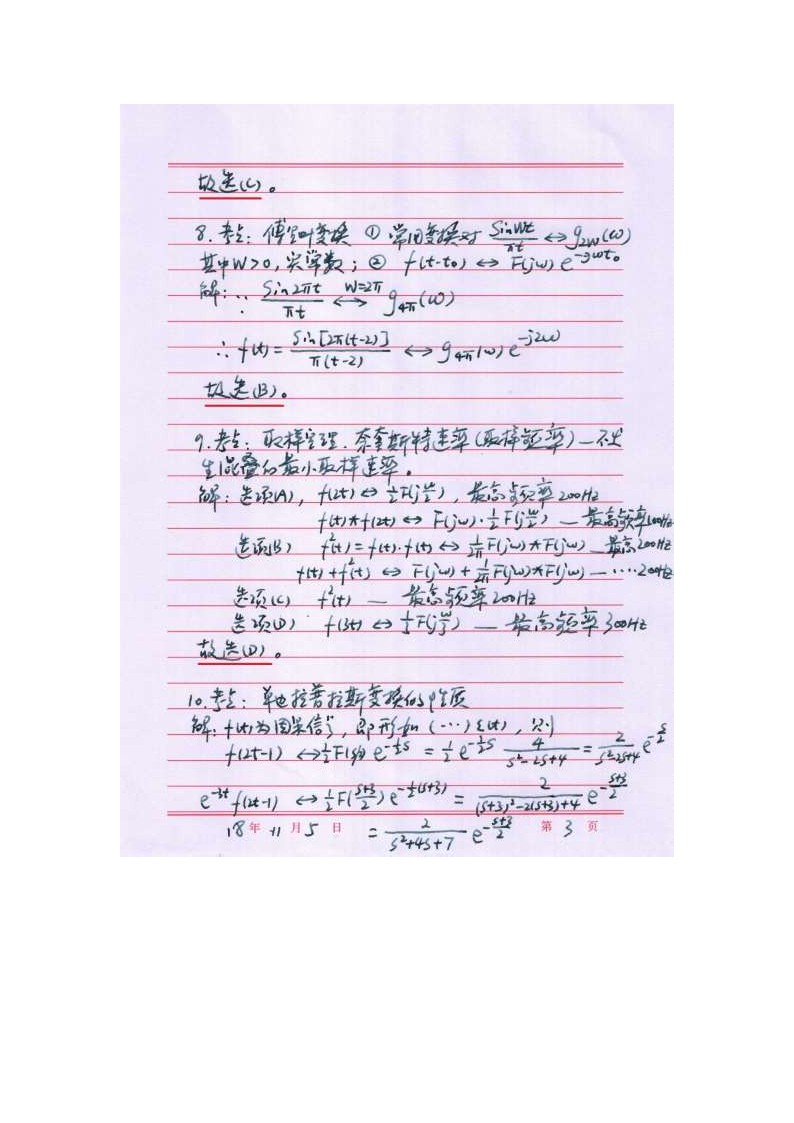 故选(C)。
8.考点: 傅里叶变换 ① 常用变换对 Sin Wt/πt ↔ g2W(ω)
其中W>0,实常数; ② f(t-t₀) ↔ F(jω)e^-jωt₀
解: ∵ Sin2πt/πt ↔ W=2π g4π(ω)
∴ f(t) = Sin[2π(t-2)]/π(t-2) ↔ g4π(ω)e^-j2ω
故选(B)。
9.考点: 取样定理、奈奎斯特速率(取样频率)—不发
生混叠的最小取样速率。
解: 选项(A), f(2t) ↔ ½F(jω/2), 最高频率200Hz
f(t)*f(2t) ↔ F(jω)·½F(jω/2) — 最高频率100Hz
选项(B) f²(t) = f(t)·f(t) ↔ 1/2π F(jω)*F(jω) 最高200Hz
f(t)+f²(t) ↔ F(jω)+1/2π F(jω)*F(jω) —····200Hz
选项(C) f²(t) — 最高频率200Hz
选项(D) f(3t) ↔ ⅓F(jω/3) — 最高频率300Hz
故选(D)。
10.考点: 单边拉普拉斯变换的性质
解: f(t)为因果信号, 即形如(···)ε(t), 则
f(2t-1) ↔ ½F(s/2)e^-½s = ½e^-½s 4/s²-2s+4 = 2/s²-2s+4 e^-s/2
e^-3t f(2t-1) ↔ ½F(s+3/2)e^-½(s+3) = 2/(s+3)²-2(s+3)+4 e^-s+3/2
= 2/s²+4s+7 e^-s+3/2
18年 11月 5日 第 3 页